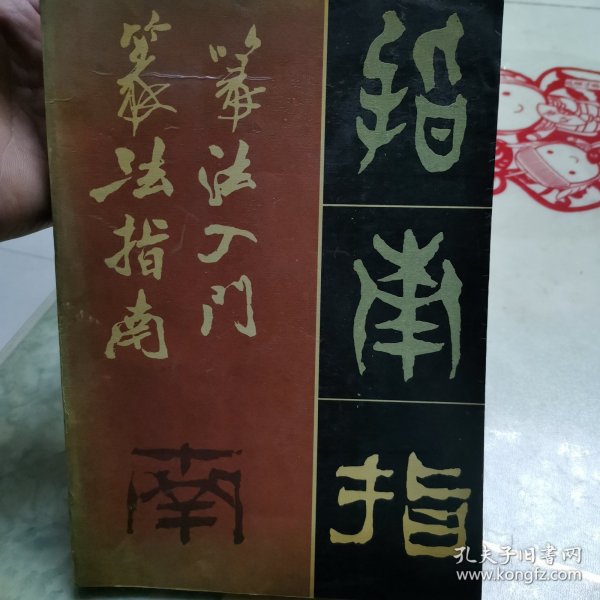 篆法入門
篆法指南
指
南
指
南
孔夫子旧书网
www.kongfz.com/